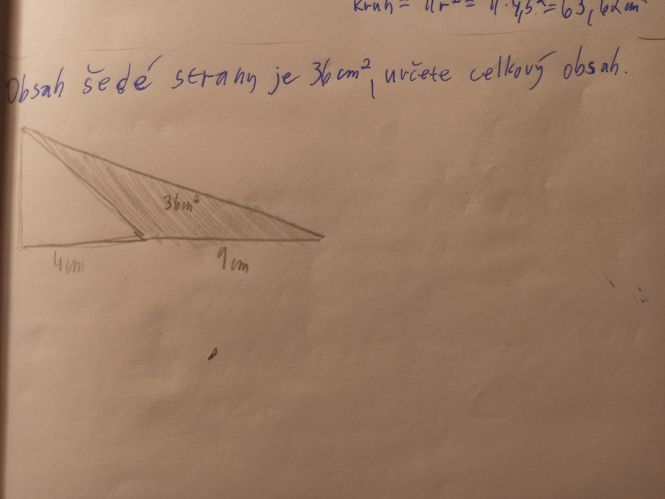 Kruh = πr² = π·4,5² = 63,62cm²
Obsah šedé strany je 36cm², určete celkový obsah.
36cm²
4cm
9cm